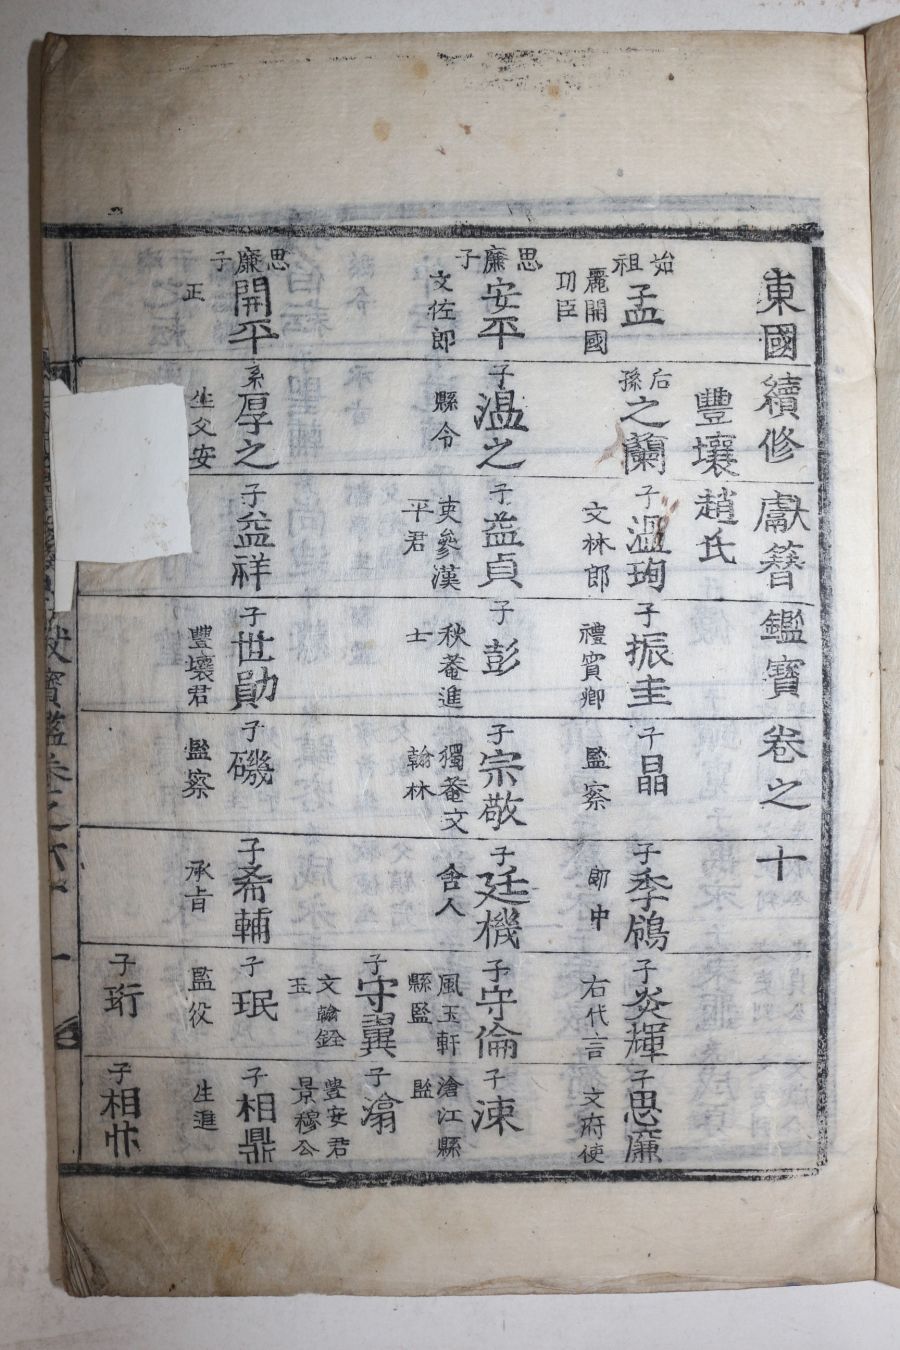 東國續修獻簪鑑寶卷之十
豐壤趙氏
始祖 孟 麗開國功臣
后孫 之蘭
子 溫珣 文林郎
子 振圭 禮賓卿
子 晶 監察
子 季鴿 郎中
子 炎輝 右代言
子 思廉 文府使
思廉子 安平 文佐郎
子 溫之 縣令
子 益貞 吏參漢平君
子 彭 秋菴進士
子 宗敬 獨菴文翰林
子 廷機 舍人
子 守倫 風玉軒縣監
子 涑 滄江縣監
子 守翼 文翰銓玉
子 滃 豊安君景穆公
思廉子 開平 正
系 厚之 生父安
子 益祥
子 世勛 豐壤君
子 磯 監察
子 希輔 承旨
子 珉 監役
子 相鼎 生進
子 珩
子 相忭